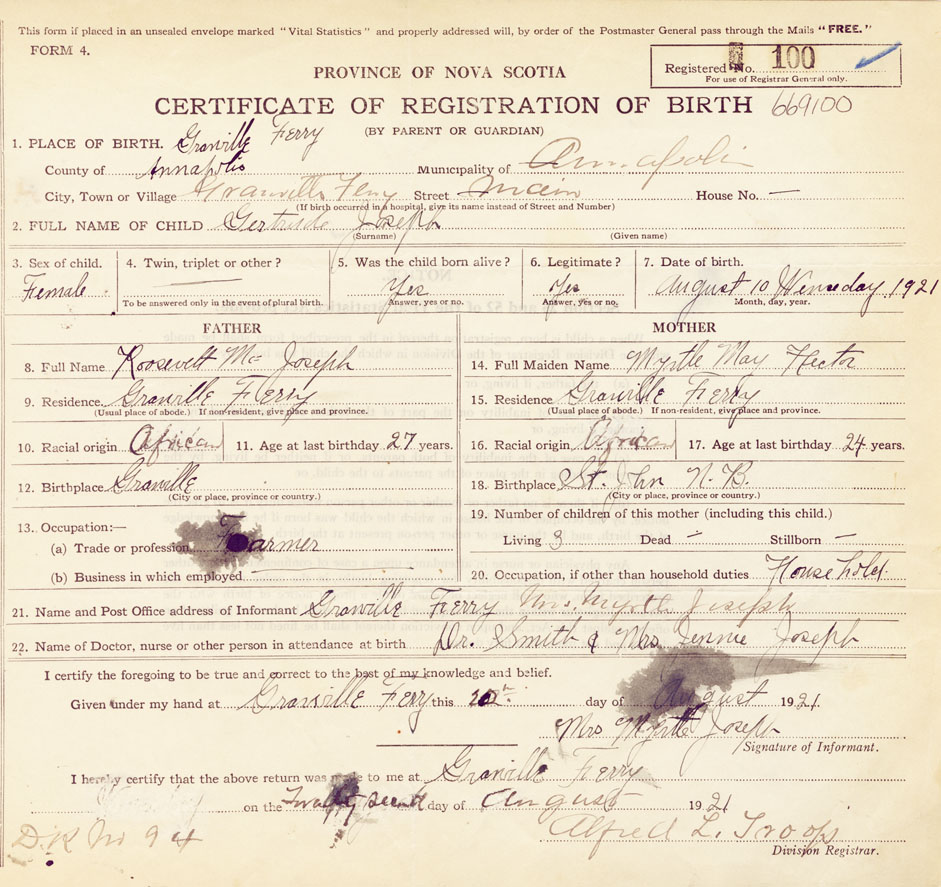 This form if placed in an unsealed envelope marked "Vital Statistics" and properly addressed will, by order of the Postmaster General pass through the Mails "FREE."
FORM 4.
Registered No. 100
For use of Registrar General only.
PROVINCE OF NOVA SCOTIA
CERTIFICATE OF REGISTRATION OF BIRTH 669100
(BY PARENT OR GUARDIAN)
1. PLACE OF BIRTH. Granville Ferry
County of Annapolis Municipality of Annapolis
City, Town or Village Granville Ferry Street Main House No. —
(If birth occurred in a hospital, give its name instead of Street and Number)
2. FULL NAME OF CHILD Gertrude Joseph
(Surname) (Given name)
3. Sex of child. 4. Twin, triplet or other? 5. Was the child born alive? 6. Legitimate? 7. Date of birth.
Female — Yes Yes August 10 Wenseday 1921
To be answered only in the event of plural birth. Answer, yes or no. Answer, yes or no. Month, day, year.
FATHER MOTHER
8. Full Name Roosevelt Mc Joseph 14. Full Maiden Name Myrtle May Hector
9. Residence. Granville Ferry 15. Residence Granville Ferry
(Usual place of abode.) If non-resident, give place and province. (Usual place of abode.) If non-resident, give place and province.
10. Racial origin African 11. Age at last birthday 27 years. 16. Racial origin African 17. Age at last birthday 24 years.
12. Birthplace Granville 18. Birthplace St. John N. B.
(City or place, province or country.) (City or place, province or country.)
13. Occupation:— 19. Number of children of this mother (including this child.)
(a) Trade or profession Farmer Living 3 Dead — Stillborn —
(b) Business in which employed — 20. Occupation, if other than household duties Household.
21. Name and Post Office address of Informant Granville Ferry Mrs. Myrtle Joseph
22. Name of Doctor, nurse or other person in attendance at birth Dr. Smith & Mrs Jennie Joseph
I certify the foregoing to be true and correct to the best of my knowledge and belief.
Given under my hand at Granville Ferry this day of August 1921.
Mrs Myrtle Joseph
Signature of Informant.
I hereby certify that the above return was made to me at Granville Ferry
on the Twenty second day of August 1921
D.R. No 94
Alfred L. Troop
Division Registrar.